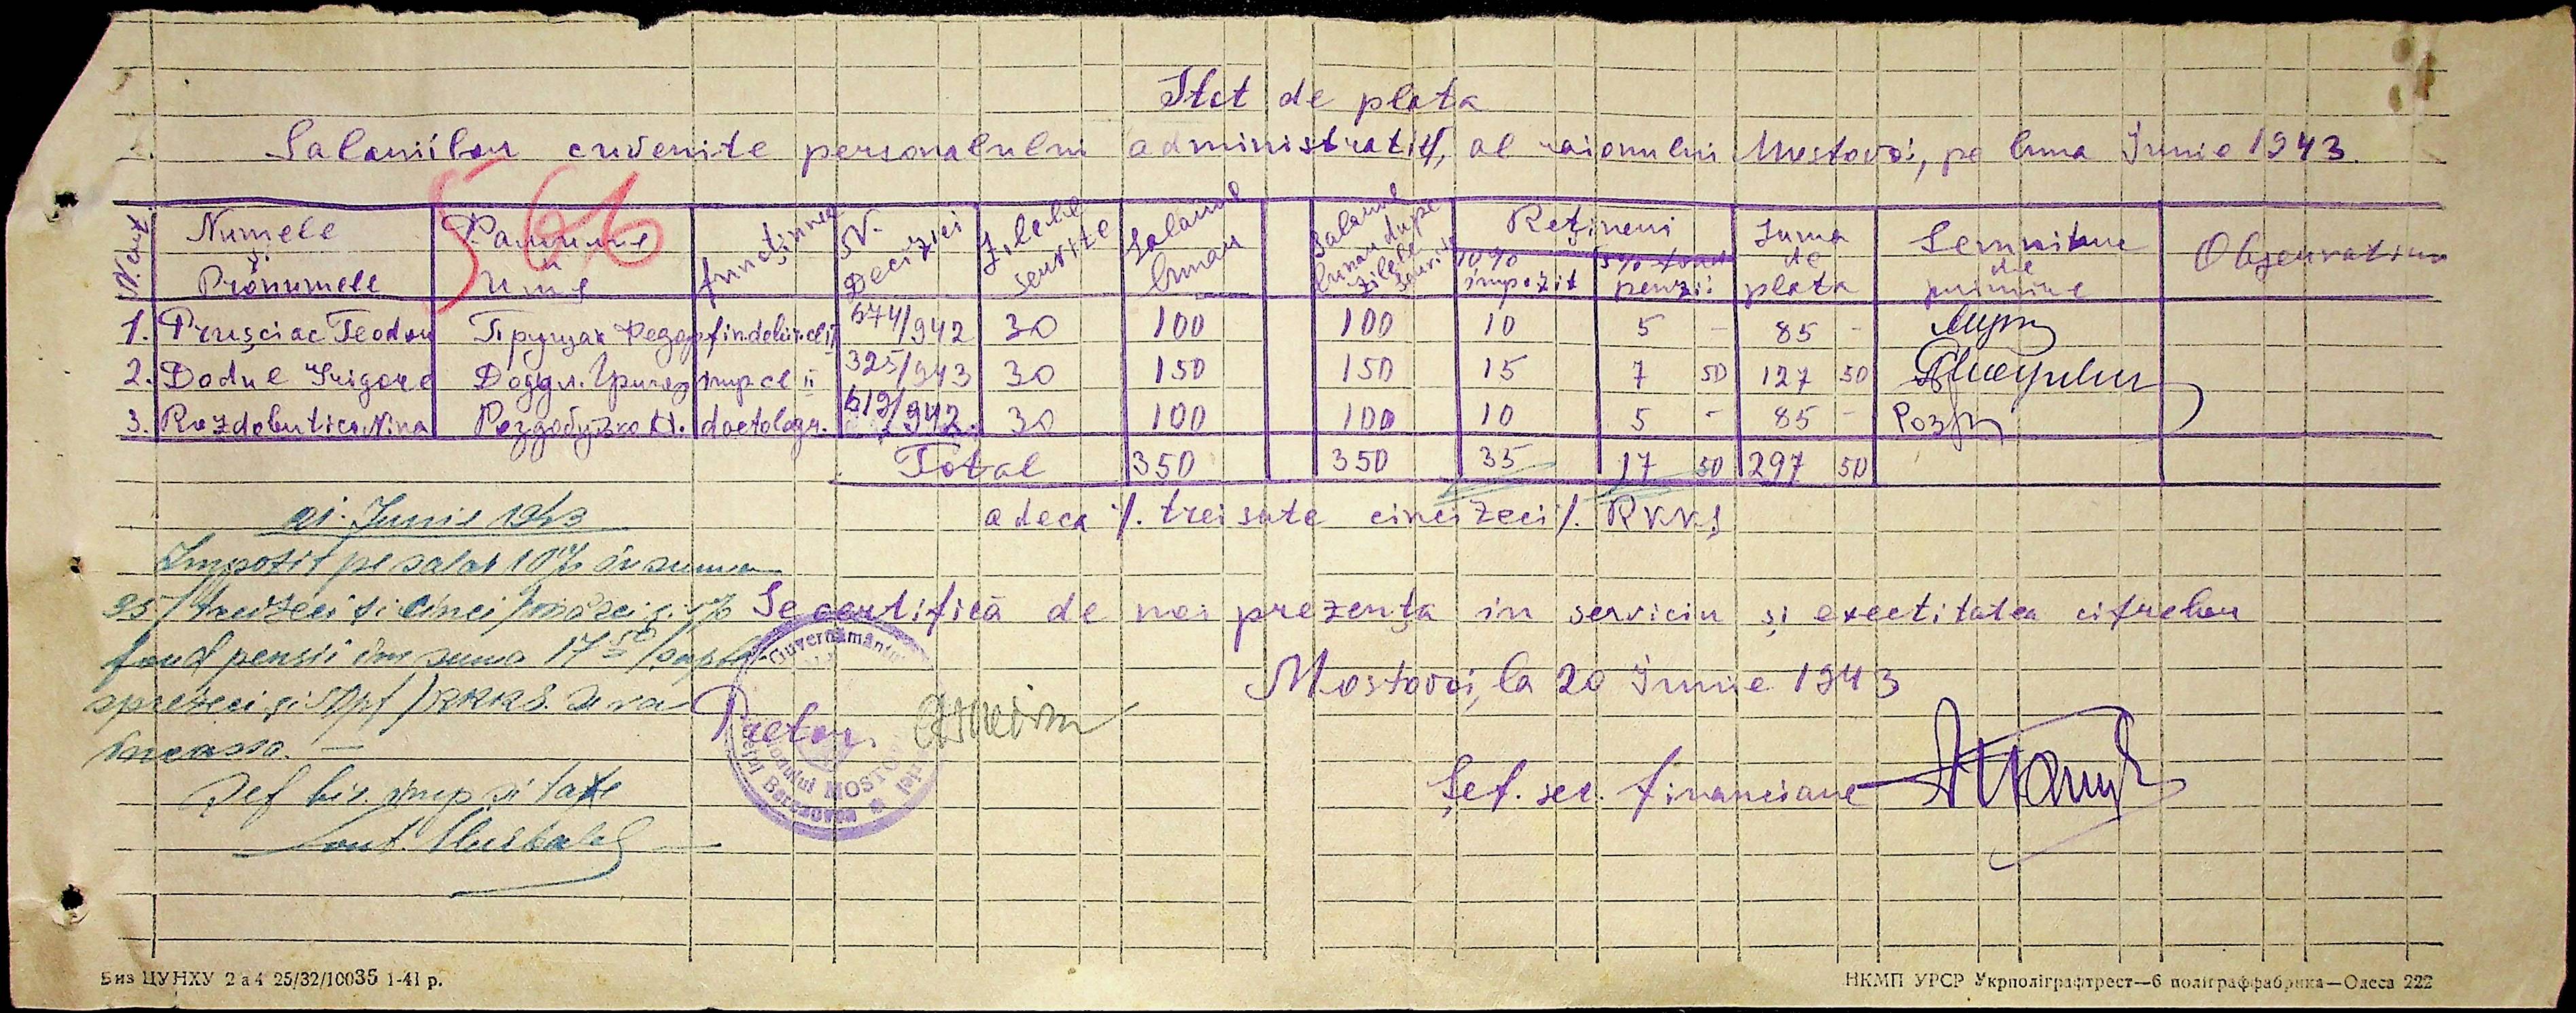 Stat de plata
Salariilor cuvenite personalului administrativ, al raionului Mostovoi, pe luna Junie 1943.
566
N. crt. Numele și Pronumele функ functiunea N. Deciziei Zilele servite Salariul lunar Salariul lunar dupe zilele servite Rețineri 10% impozit 5% fond penzii Suma de plata Semnitura de primire Observatiuni
1. Prușciac Teodor Прущак Федор 574/942 30 100 100 10 5 - 85 -
2. Dodul Grigore Доддул. Григор imp cl II 325/943 30 150 150 15 7 50 127 50
3. Razdobutico Nina Роздобудько Н. dactologr. 619/942. 30 100 100 10 5 - 85 -
Total 350 350 35 17 50 297 50
adeca %. trei sute cinci zeci %. RKKS
21. Junie 1943
Impozit pe salar 10% în suma
35 / treizeci și cinci / mărci și 5%
fond pensii în suma 17 50 / șapte
sprezeci și 50 pf / RKKS. Se va
încassa. —
Șef bir. imp și taxe
Se certifică de noi prezența in serviciu și exectitatea cifrelor
Mostovoi, la 20 Junie 1943
Pretor.
Guvernământul
Raionului MOSTOVOI
Județul Berezovca
Șef. sec. financiare
Биз ЦУНХУ 2 а 4 25/32/10035 1-41 р.
НКМП УРСР Укрполіграфтрест—6 поліграффабрика—Одеса 222